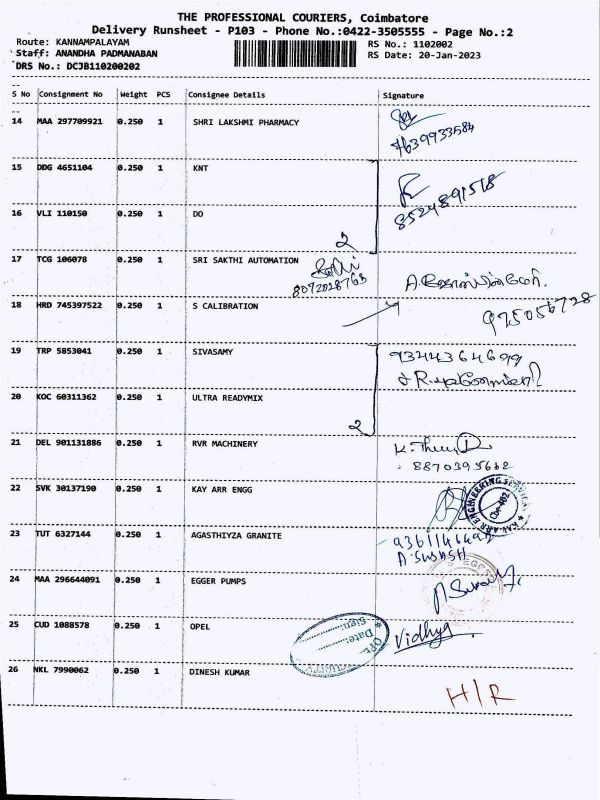 THE PROFESSIONAL COURIERS, Coimbatore
Delivery Runsheet - P103 - Phone No.:0422-3505555 - Page No.:2
Route: KANNAMPALAYAM RS No.: 1102002
Staff: ANANDHA PADMANABAN RS Date: 20-Jan-2023
DRS No.: DCJB110200202
S No Consignment No Weight PCS Consignee Details Signature
14 MAA 297709921 0.250 1 SHRI LAKSHMI PHARMACY
15 DDG 4651104 0.250 1 KNT
8524891518
16 VLI 110150 0.250 1 DO
2
17 TCG 106078 0.250 1 SRI SAKTHI AUTOMATION
8072028763
18 HRD 745397522 0.250 1 S CALIBRATION
975056728
19 TRP 5853041 0.250 1 SIVASAMY 9344364699
20 KOC 60311362 0.250 1 ULTRA READYMIX
2
21 DEL 901131886 0.250 1 RVR MACHINERY
8870395682
22 SVK 30137190 0.250 1 KAY ARR ENGG
KAY ARR ENGINEERING SERVICES
23 TUT 6327144 0.250 1 AGASTHIYZA GRANITE
24 MAA 296644091 0.250 1 EGGER PUMPS
25 CUD 1088578 0.250 1 OPEL Vidhya
Date:
Sign:
26 NKL 7990062 0.250 1 DINESH KUMAR
H/R